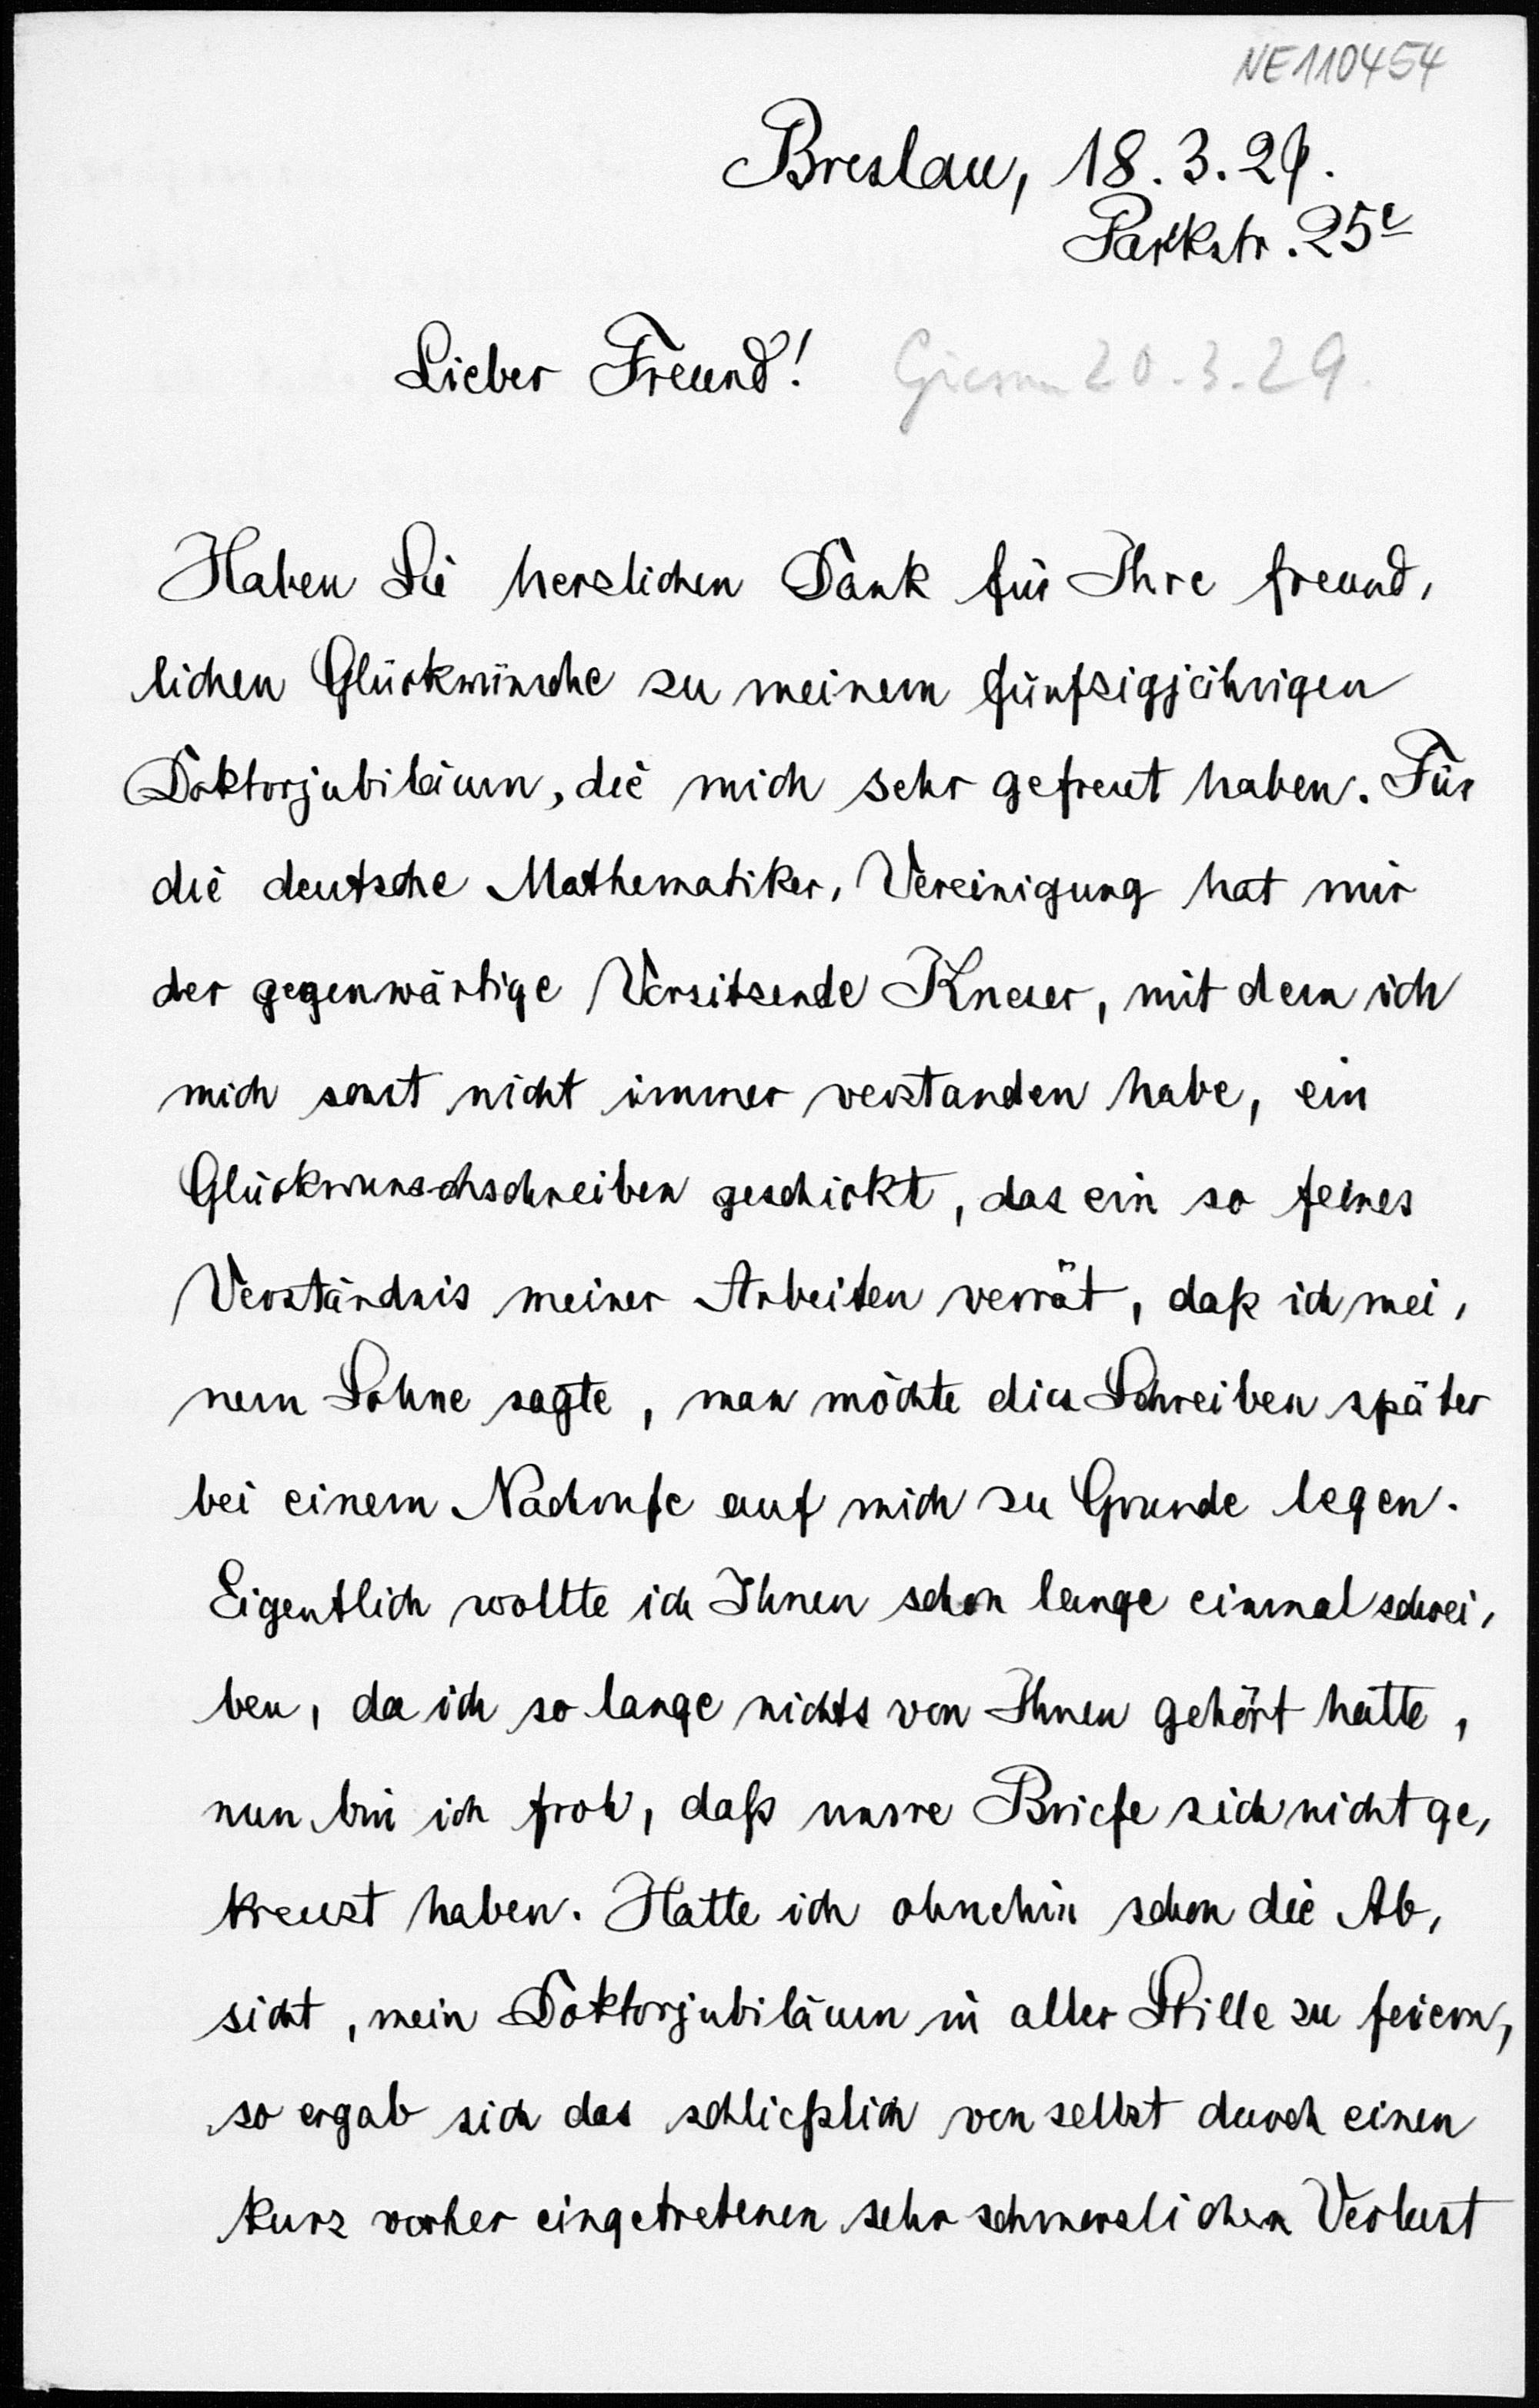 NE110454
Breslau, 18. 3. 29.
Parkstr. 25e
Lieber Freund!
20.3.29.
Haben Sie herzlichen Dank für Ihre freund,
lichen Glückwünsche zu meinem fünfzigjährigen
Doktorjubiläum, die mich sehr gefreut haben. Für
die deutsche Mathematiker, Vereinigung hat mir
der gegenwärtige Vorsitzende Kneser, mit dem ich
mich sonst nicht immer verstanden habe, ein
Glückwunschschreiben geschickt, das ein so feines
Verständnis meiner Arbeiten verrät, daß ich mei,
nem Sohne sagte, man möchte dies Schreiben später
bei einem Nachrufe auf mich zu Grunde legen.
Eigentlich wollte ich Ihnen schon lange einmal schrei,
ben, da ich so lange nichts von Ihnen gehört hatte,
nun bin ich froh, daß unsre Briefe sich nicht ge,
kreuzt haben. Hatte ich ohnehin schon die Ab,
sicht, mein Doktorjubiläum in aller Stille zu feiern,
so ergab sich das schließlich von selbst durch einen
kurz vorher eingetretenen sehr schmerzlichen Verlust